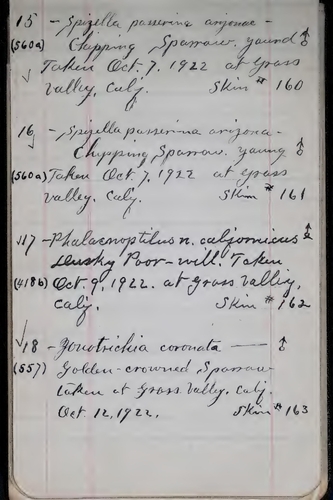 15 - Spizella passerina arizonae -
(560a) Chipping Sparrow. young ♂
✓ Taken Oct. 7, 1922 at Grass
Valley, Calif. Skin # 160
16 - Spizella passerina arizona -
✓ Chipping Sparrow. young ♂
(560a) Taken Oct 7, 1922 at Grass
Valley, Calif. Skin # 161
✓17 - Phalaenoptilus n. californicus
Dusky Poor-will. Taken
(418b) Oct. 9, 1922. at Grass Valley,
Calif. Skin # 162
✓18 - Zonotrichia coronata — ♂
(557) Golden-crowned Sparrow
taken at Grass Valley, Calif.
Oct. 12, 1922. Skin # 163